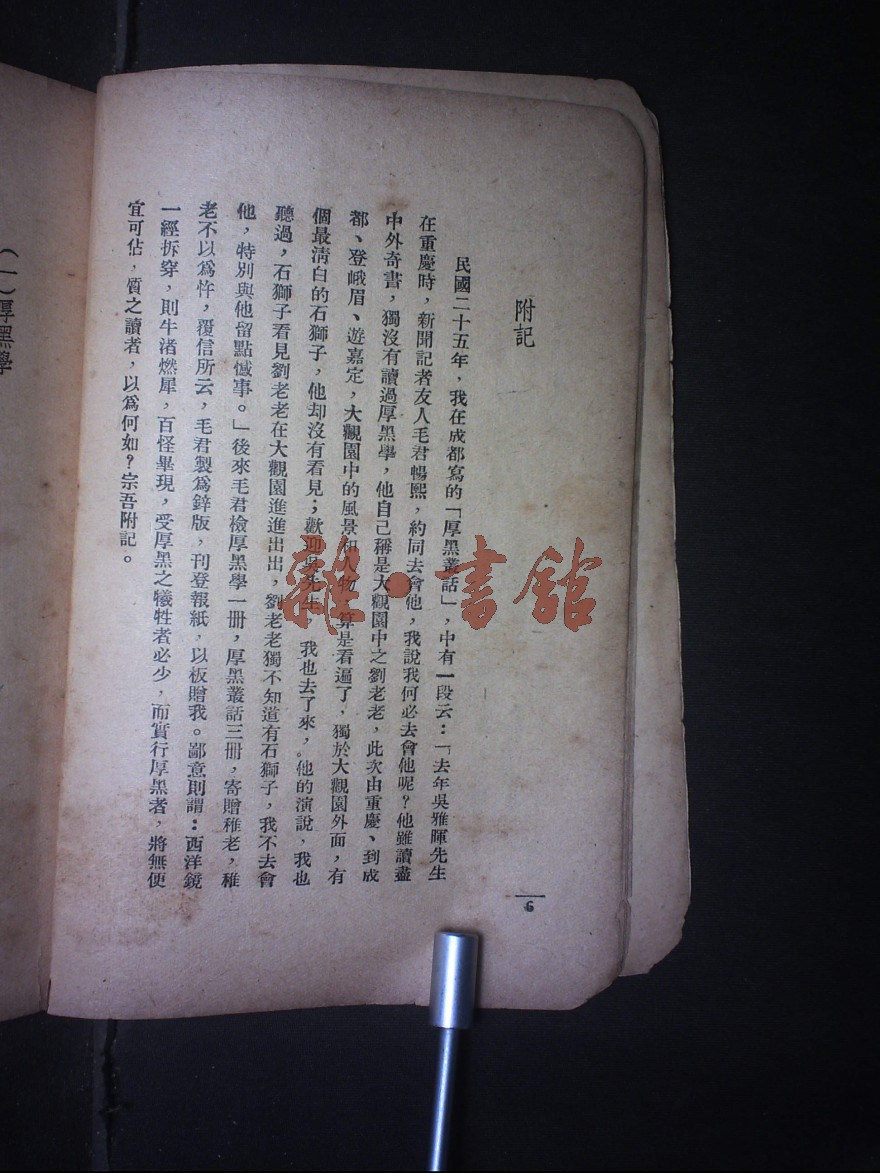 附記
民國二十五年，我在成都寫的「厚黑叢話」，中有一段云：「去年吳稚暉先生
在重慶時，新聞記者友人毛君暢熙，約同去會他，我說我何必去會他呢？他雖讀盡
中外奇書，獨沒有讀過厚黑學，他自己稱是大觀園中之劉老老，此次由重慶、到成
都、登峨眉、遊嘉定，大觀園中的風景和人物，算是看逼了，獨於大觀園外面，有
個最清白的石獅子，他却沒有看見；歡迎吳先生，我也去了來，他的演說，我也
聽過，石獅子看見劉老老在大觀園進進出出，劉老老獨不知道有石獅子，我不去會
他，特別與他留點憾事。」後來毛君檢厚黑學一册，厚黑叢話三册，寄贈稚老，稚
老不以為忤，覆信所云，毛君製為鋅版，刊登報紙，以板贈我。鄙意則謂：西洋鏡
一經拆穿，則牛渚燃犀，百怪畢現，受厚黑之犧牲者必少，而實行厚黑者，將無便
宜可佔，質之讀者，以為何如？宗吾附記。
6
（一）厚黑學
雜·書館